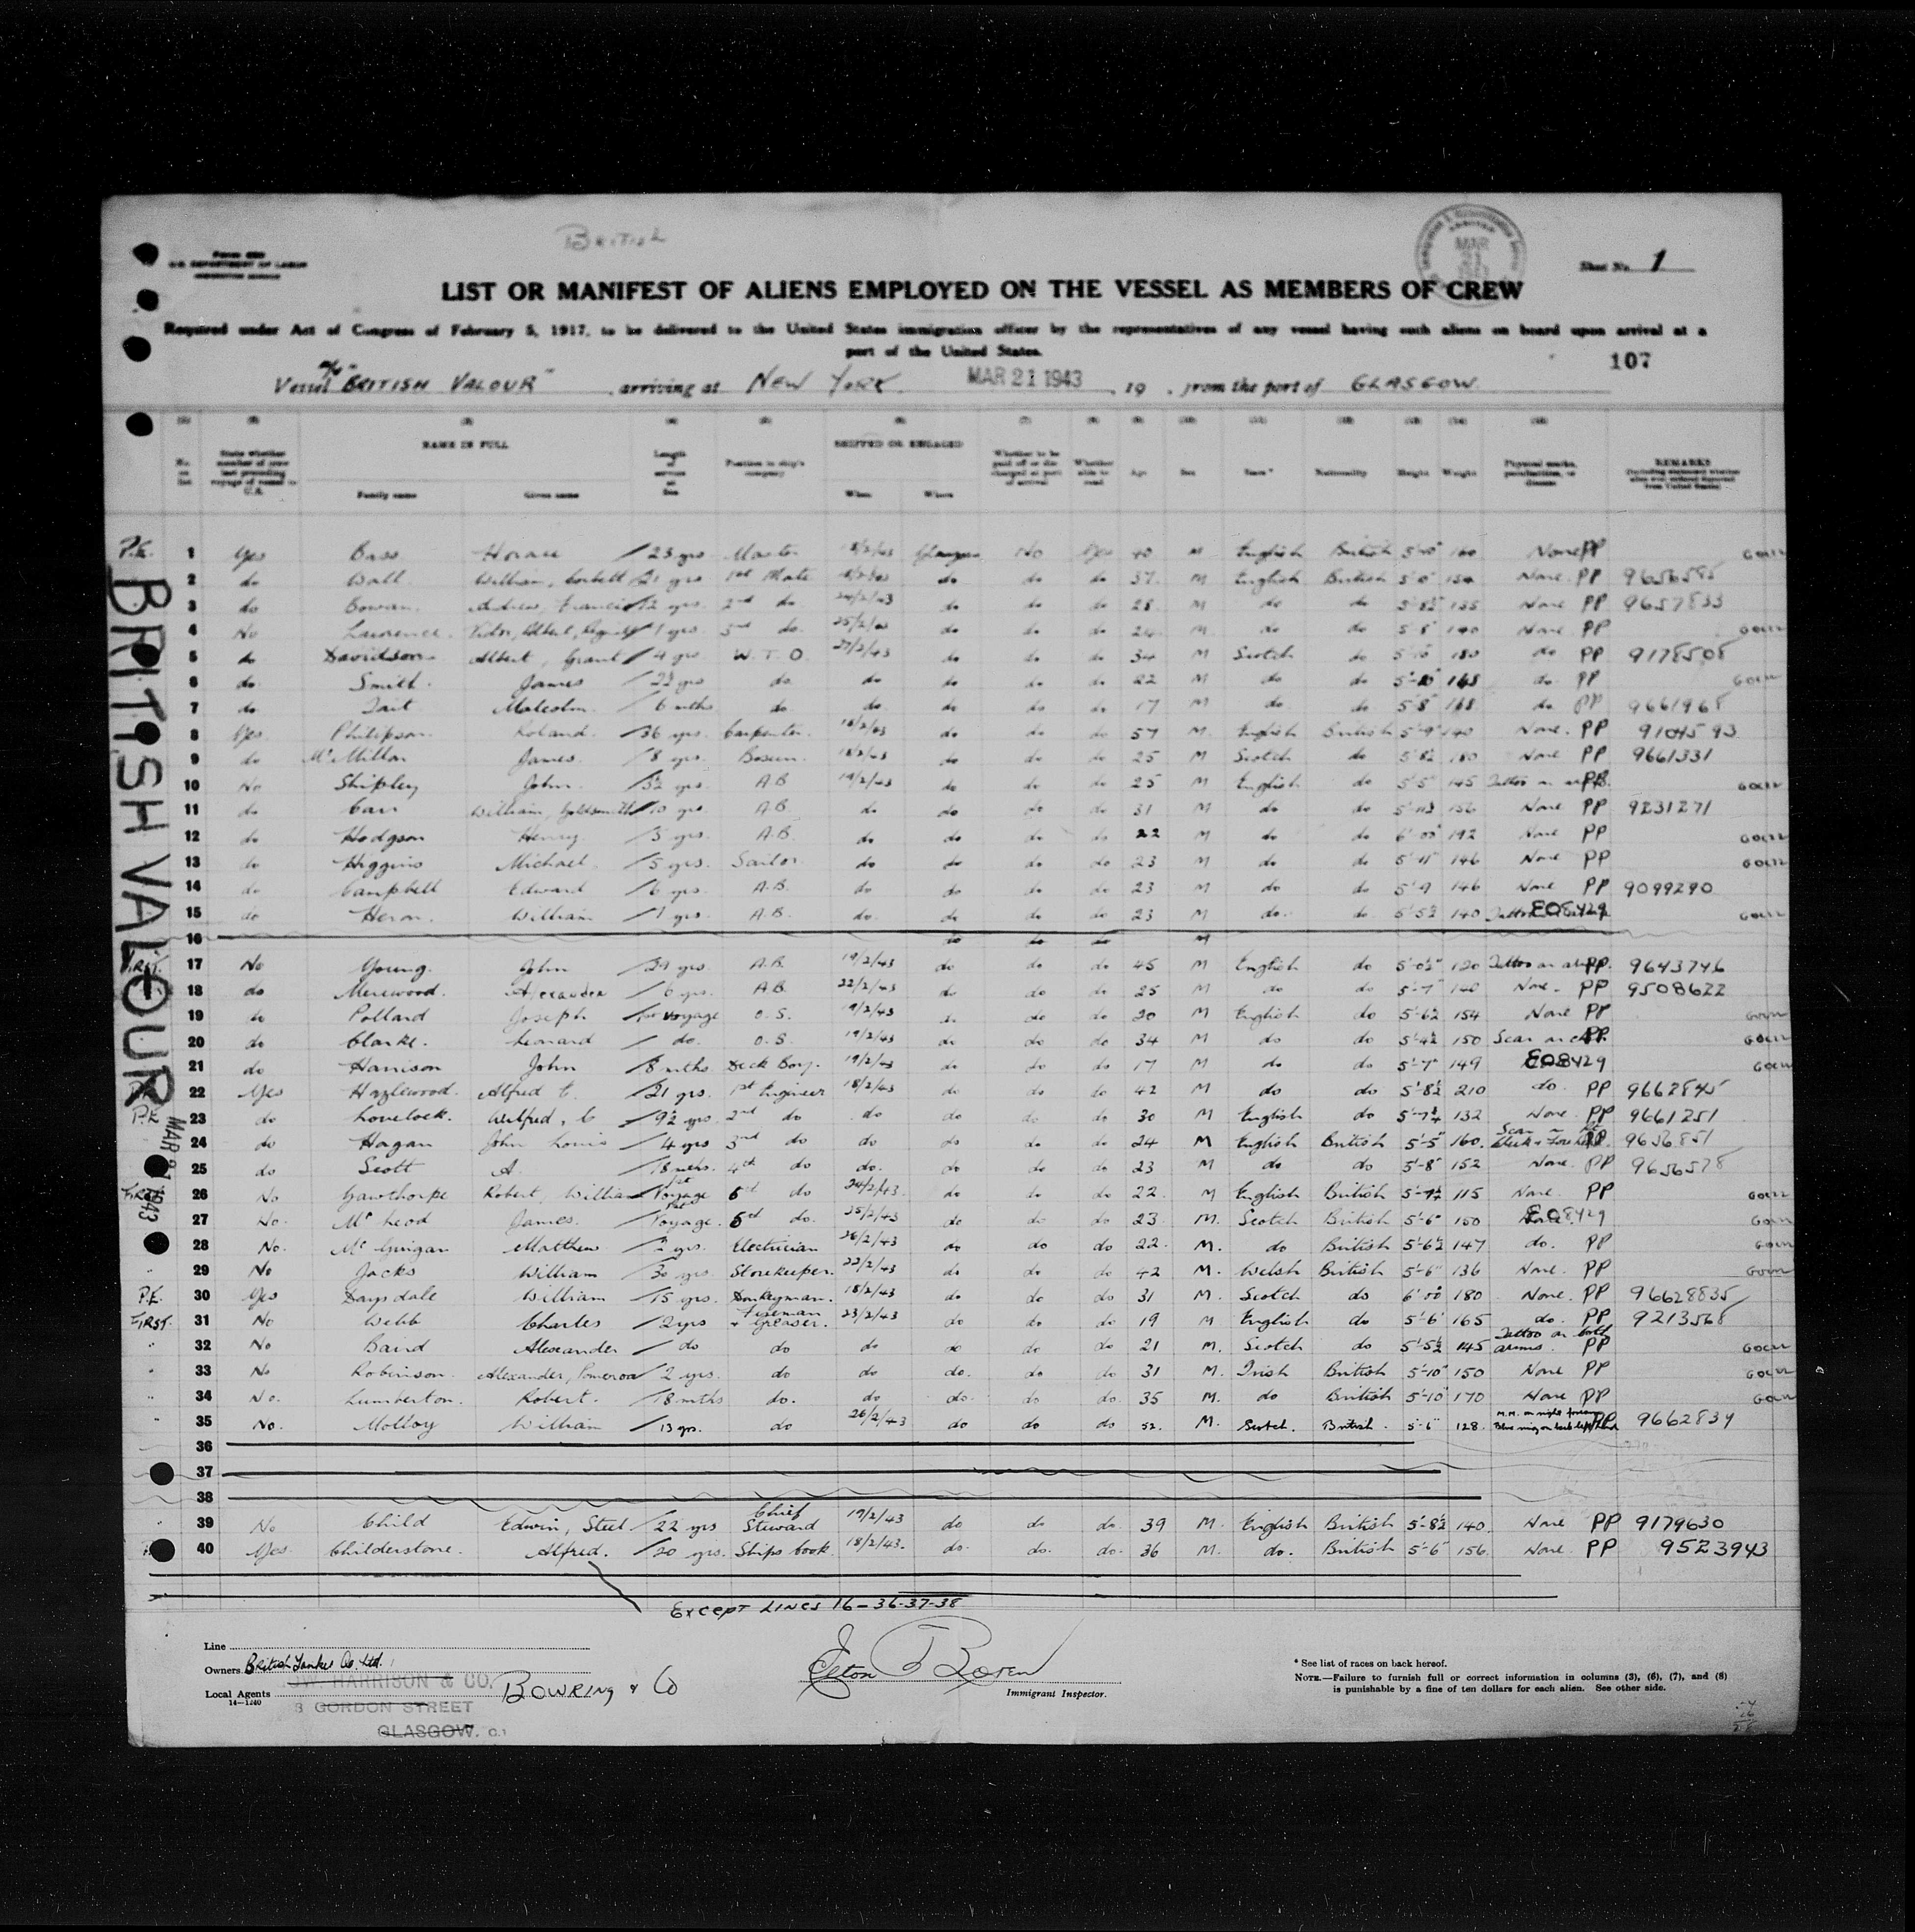 British
U.S. DEPARTMENT OF LABOR
Sheet No. 1
MAR 21
LIST OR MANIFEST OF ALIENS EMPLOYED ON THE VESSEL AS MEMBERS OF CREW
Required under Act of Congress of February 5, 1917, to be delivered to the United States immigration officer by the representatives of any vessel having such aliens on board upon arrival at a
port of the United States.
107
Vessel "BRITISH VALOUR" arriving at NEW YORK MAR 21 1943, 19 , from the port of GLASGOW
NAME IN FULL SHIPPED OR ENGAGED
Family name Given name Position in ship's company When Where Age Sex Race* Nationality Height Weight REMARKS
BRITISH VALOUR
P.E. 1 Yes Bass Horace 23 yrs Master 18/2/43 Glasgow No Yes 40 M English British 5'-10" 160 None PP
2 do Wall William, Corbett 21 yrs 1st Mate do do do 37 M English British 154 None. PP 9656595
3 do Bowan Andrew, Francis 12 yrs. 2nd do 24/2/43 do do do 28 M do do 5'-8½" 135 None PP 9657833
4 No Lawrence. Victor, Albert, 1 yrs 3rd do. 25/2/43 do do do 24 M do do 5'8" 140 None PP
5 do Davidson Albert, Grant 4 yrs W.T.O. 27/2/43 do do do 34 M Scotch do 180 do PP 9178508
6 do Smith. James yrs do. do do do do 22 M do do 5'-10" 168 do. PP
7 do Tait Malcolm. 6 mths do do. do do do 17 M do do 5'8" 168 do PP 9661968
8 Yes Philipson Roland. 36 yrs. Carpenter. 18/2/43 do do do 57 M. English British 5'-9" 140 None. PP 9104593
9 do McMillan James. 8 yrs. Bosun. 18/2/43 do do do 25 M Scotch do 5'8½ 180 None PP 9661331
10 No Shipley John. 3½ yrs. A.B 19/2/43 do do do 25 M English do 5'-5" 145 Tattoo on
11 do Carr William, Goldsmith 10 yrs. A.B do do do do 31 M do do 156 None PP 9231271
12 do Hodgson Henry. 5 yrs. A.B. do do do do 22 M do do 6'-00" 192 None PP
13 do Higgins Michael. 5 yrs. Sailor do do do do 23 M do do 5'-11" 146 None PP
14 do Campbell Edward 6 yrs. A.B. do do do do 23 M do do 5'-9 146 None PP 9099290
15 do Heron. William 1 yrs. A.B. do. do do do 23 M do. do 5'-5½ 140 Tattoo E08429
16 do do do M
FIRST. 17 No Young. John 29 yrs A.B. 19/2/43 do do do 45 M English do 5'-0½" 120 Tattoo on arm PP. 9643746
18 do Merewood. Alexander 6 yrs. A.B. 22/2/43 do do do 25 M do do 5'-7" 140 None. PP 9508622
19 do Pollard Joseph 1st voyage O.S. 19/2/43 do do do 20 M English do 5'-6½ 154 None PP
20 do Clarke. Leonard do. O.S. 19/2/43 do do do 34 M do do 5'-4½ 150 Scar on PP.
21 do Harrison John 8 mths Deck Boy. 19/2/43 do do do 17 M do do 5'-7" 149 E08429
22 Yes Hazlewood. Alfred C. 21 yrs. 1st Engineer 18/2/43 do do do 42 M do do 5'-8½ 210 do. PP 9662845
P.E 23 do Lovelock. Wilfred, C 9½ yrs. 2nd do do do do do 30 M English do 132 None. PP 9661251
24 do Hagan John Louis 4 yrs 3rd do do do do do 24 M English British 5'-5" 160. Scar on Cheek + PP. 9656851
25 do Scott A. 18 mths. 4th do do. do do do 23 M do do 5'-8" 152 None. PP 9656578
FIRST 26 No Gawthorpe Robert, William 1st Voyage 5th do 24/2/43. do do do 22. M English British 115 None. PP
27 No. McLeod James. 1st Voyage. do. 25/2/43 do do do 23. M. Scotch British 5'-6" 150 E08429
28 No. McGuigan Matthew 2 yrs. Electrician 26/2/43 do do do 22. M. do British 5'6½ 147 do. PP
29 No Jacks William 30 yrs. Storekeeper. 22/2/43 do do do 42 M. Welsh British 5'-6" 136 None. PP
P.E. 30 Yes Drysdale William 15 yrs. Donkeyman. 18/2/43 do do do 31 M. Scotch do 6'00 180 None. PP 96628835
FIRST. 31 No Webb Charles 2 yrs Fireman + Greaser. 23/2/43 do do do 19 M. English do 5'-6" 165 do. PP 9213568
32 No Baird Alexander do do do do do do 21 M. Scotch do 5'-5½ 145 Tattoo on both arms. PP
33 No Robinson. Alexander, Pomeroy 2 yrs. do do do. do do 31 M. Irish British 5'-10" 150 None PP
34 No. Lumberton. Robert. 18 mths do. do do. do do 35 M. do British 5'-10" 170 None PP
35 No. Molloy William 13 yrs. do 26/2/43 do do do 52. M. Scotch. British. 5'-6" 128. M.M. on right forearm PP 9662834
36
37
38
39 No Child Edwin, Steel 22 yrs Chief Steward 19/2/43 do do do. 39 M. English British 5'-8½ 140. None PP 9179630
40 Yes. Childerstone. Alfred. 20 yrs. Ships Cook. 18/2/43. do. do. do. 36 M. do. British 5'-6" 156. None. PP 9523943
MAR 21 1943
EXCEPT LINES 16-36-37-38
Line
Owners British Tanker Co. Ltd.
HARRISON & CO.
Local Agents BOWRING & Co
14-1240
GORDON STREET
GLASGOW. C.1
Immigrant Inspector.
* See list of races on back hereof.
NOTE.—Failure to furnish full or correct information in columns (3), (6), (7), and (8)
is punishable by a fine of ten dollars for each alien. See other side.